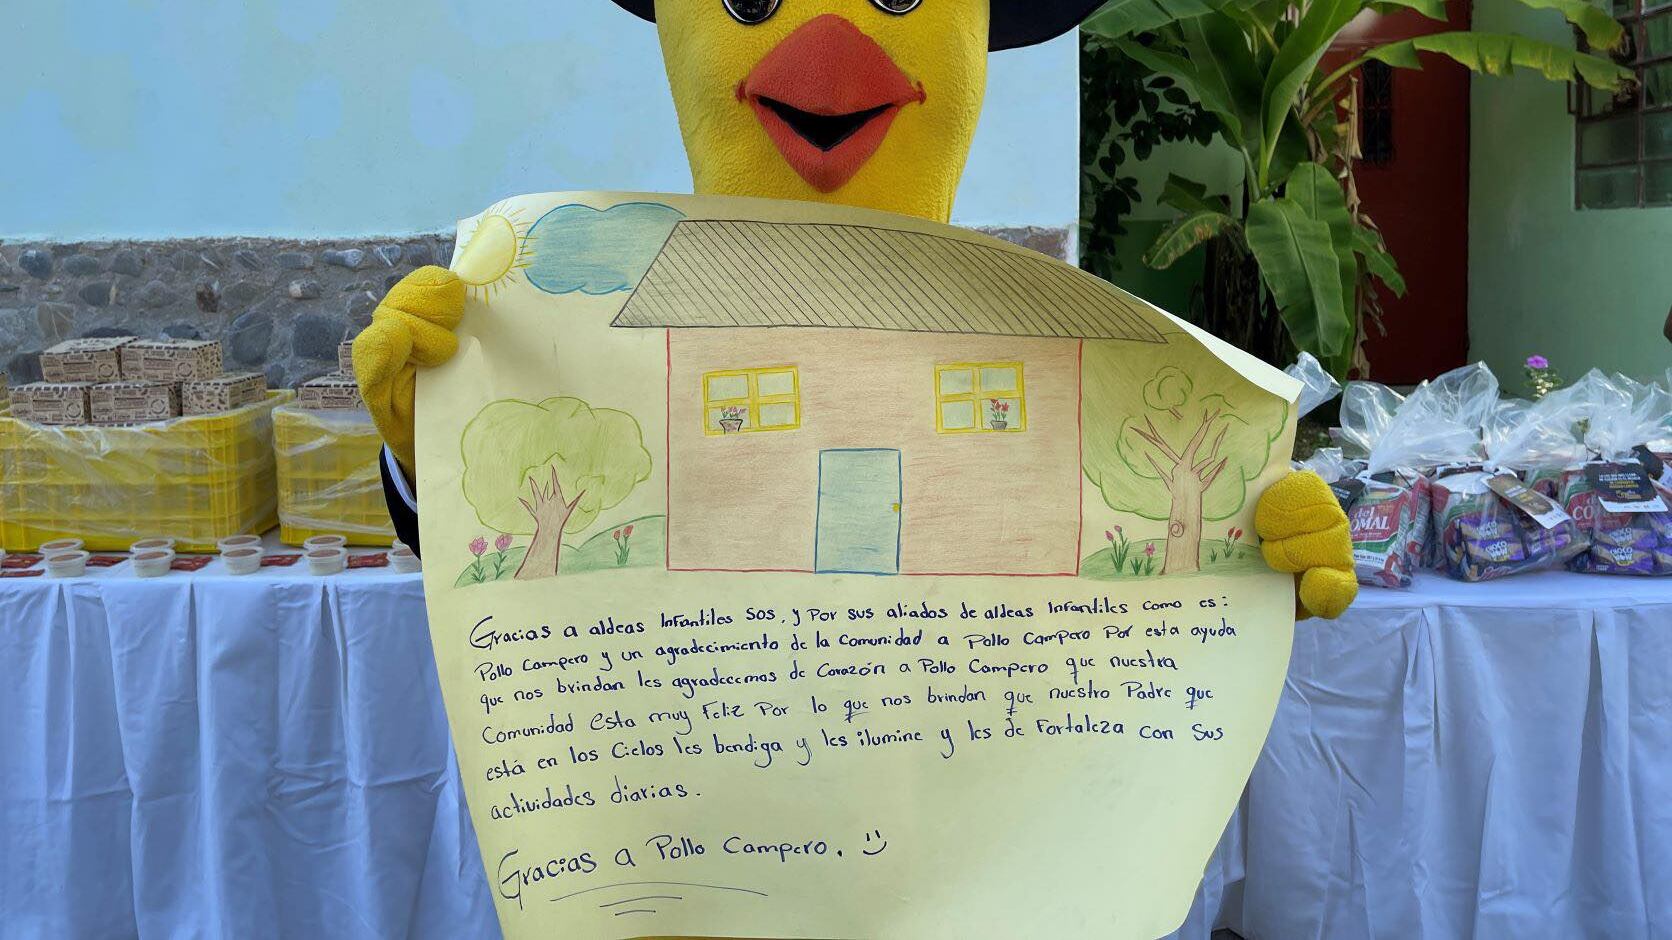 Gracias a aldeas Infantiles SOS, y Por sus aliados de aldeas Infantiles como es:
Pollo Campero y un agradecimiento de la Comunidad a Pollo Campero Por esta ayuda
que nos brindan les agradecemos de Corazón a Pollo Campero que nuestra
Comunidad esta muy Feliz Por lo que nos brindan que nuestro Padre que
está en los Cielos les bendiga y les ilumine y les de Fortaleza con sus
actividades diarias.
Gracias a Pollo Campero. :)
del
COMAL
CHOCO
WOW